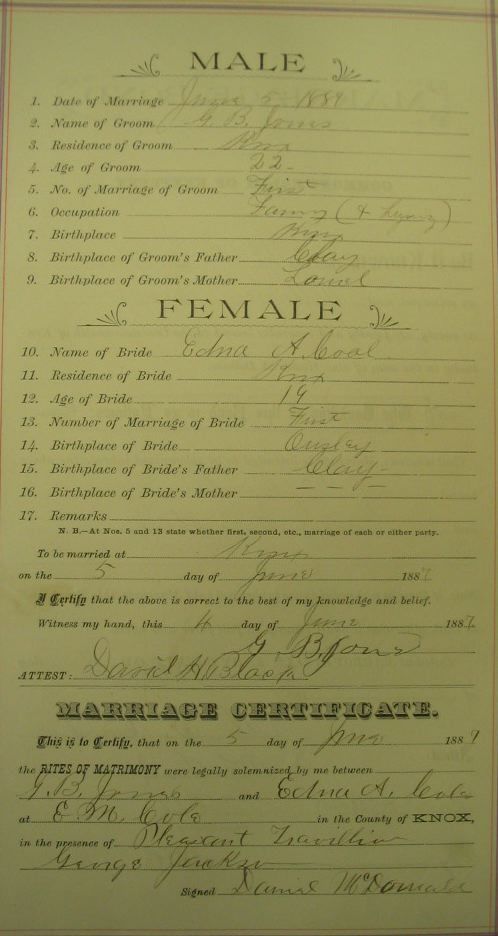 MALE
1. Date of Marriage June 5, 1889
2. Name of Groom G. B. Jones
3. Residence of Groom Knox
4. Age of Groom 22
5. No. of Marriage of Groom First
6. Occupation
7. Birthplace Knox
8. Birthplace of Groom's Father Clay
9. Birthplace of Groom's Mother Laurel
FEMALE
10. Name of Bride Edna A. Cool
11. Residence of Bride Knox
12. Age of Bride 19
13. Number of Marriage of Bride First
14. Birthplace of Bride Owsley
15. Birthplace of Bride's Father Clay
16. Birthplace of Bride's Mother
17. Remarks
N. B.—At Nos. 5 and 13 state whether first, second, etc., marriage of each or either party.
To be married at Knox
on the 5 day of June 188
I Certify that the above is correct to the best of my knowledge and belief.
Witness my hand, this 4 day of June 188
G. B. Jones
ATTEST: David H Black
MARRIAGE CERTIFICATE.
This is to Certify, that on the 5 day of June 1889
the RITES OF MATRIMONY were legally solemnized by me between
G. B. Jones and Edna A. Cole
at E M. Cole in the County of KNOX,
in the presence of Pleasant
George Jackson
Signed Daniel McDonald